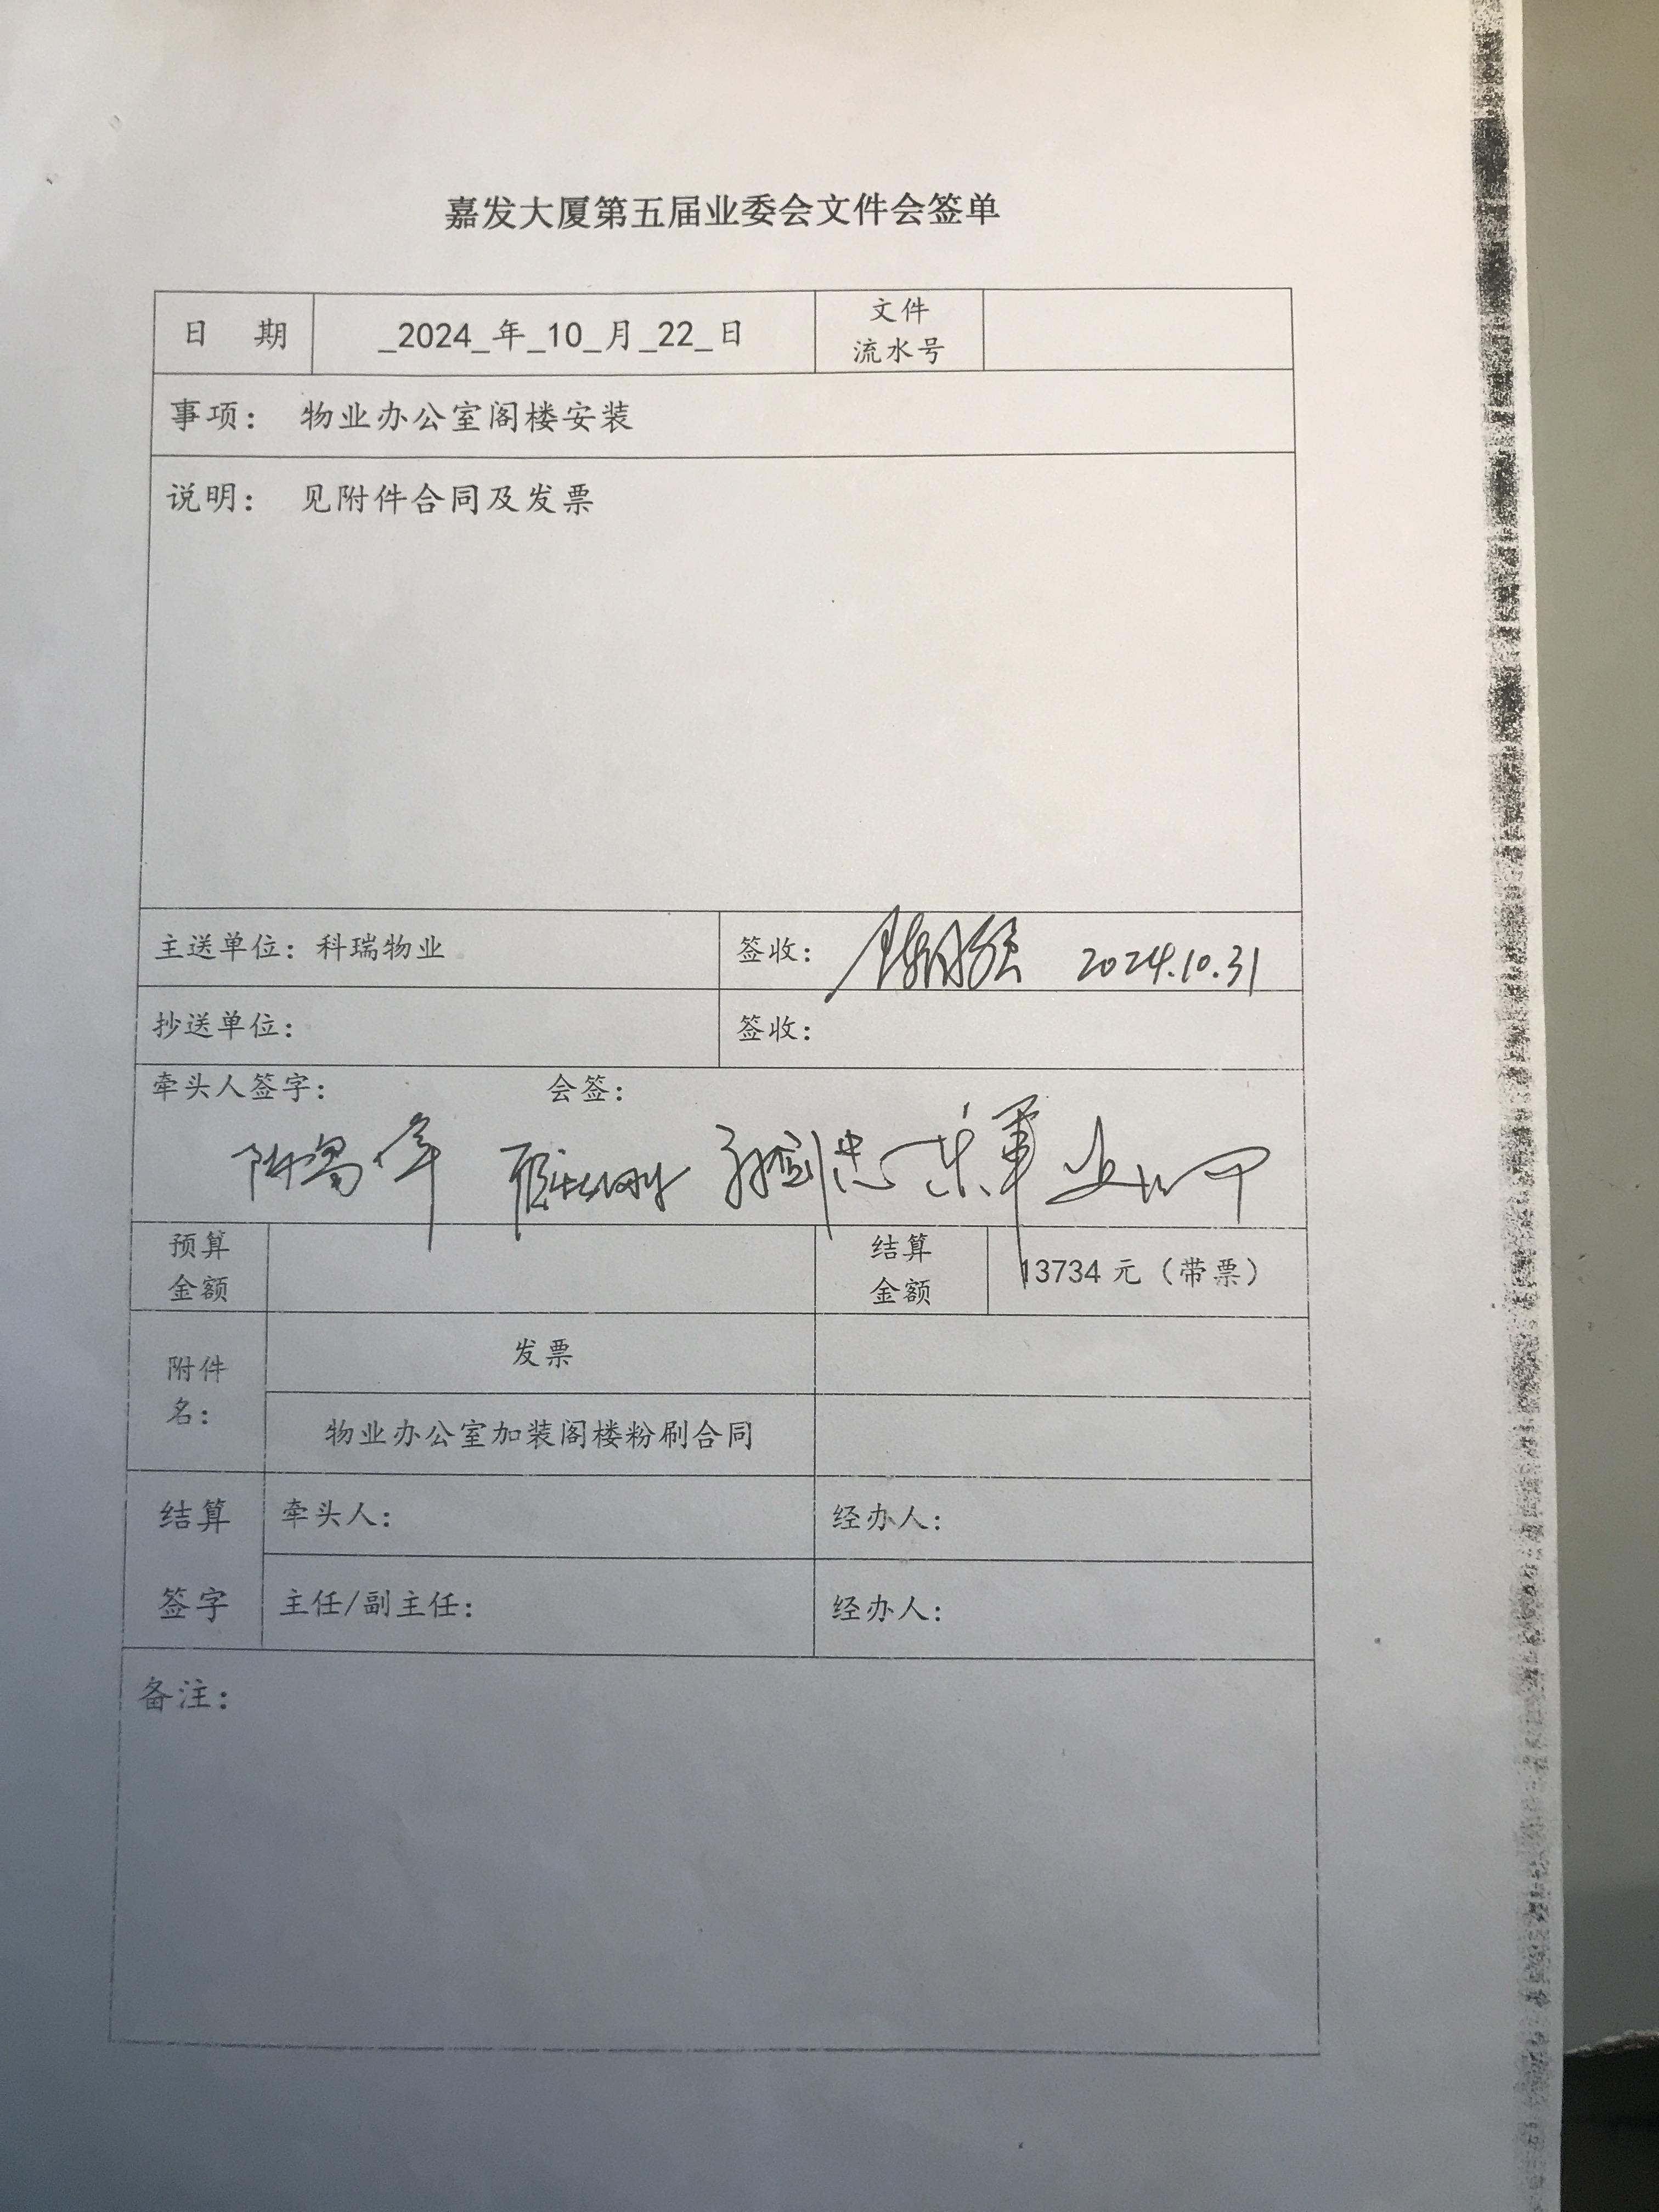 嘉发大厦第五届业委会文件会签单
日 期 _2024_年_10_月_22_日 文件流水号
事项： 物业办公室阁楼安装
说明： 见附件合同及发票
主送单位：科瑞物业 签收： 2024.10.31
抄送单位： 签收：
牵头人签字： 会签：
预算金额 结算金额 13734 元（带票）
附件名： 发票
物业办公室加装阁楼粉刷合同
结算签字 牵头人： 经办人：
主任/副主任： 经办人：
备注：